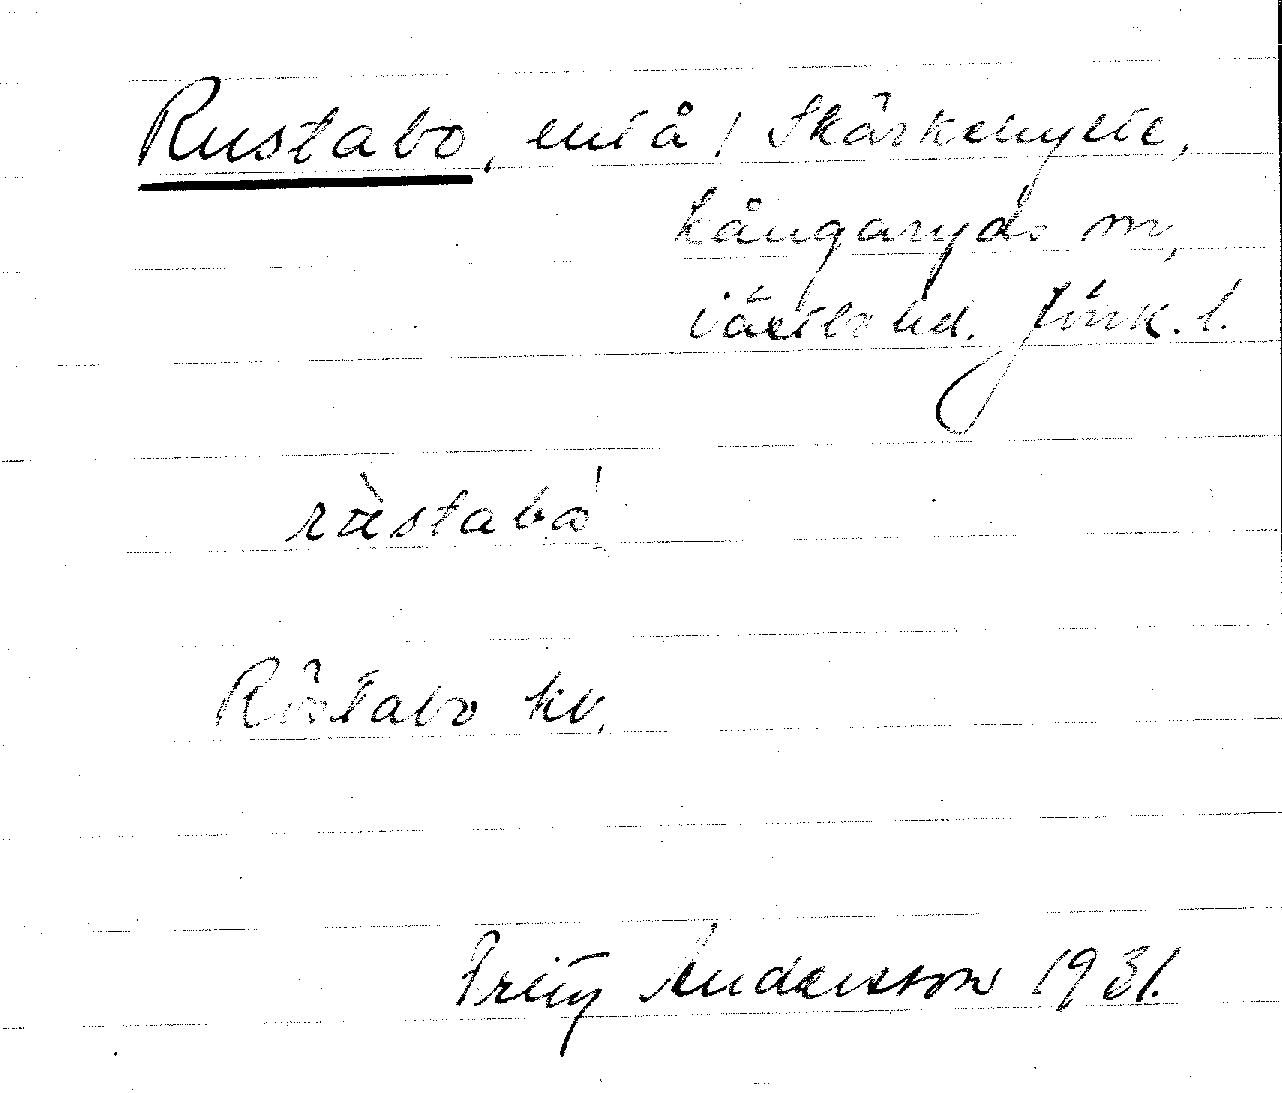 Rustabo, unå / Skärkehytte,
Kångaryds sn,
Västbo hd. Jönk. l.
rùstabå
Röstabo kv.
Fritz Andersson 1931.